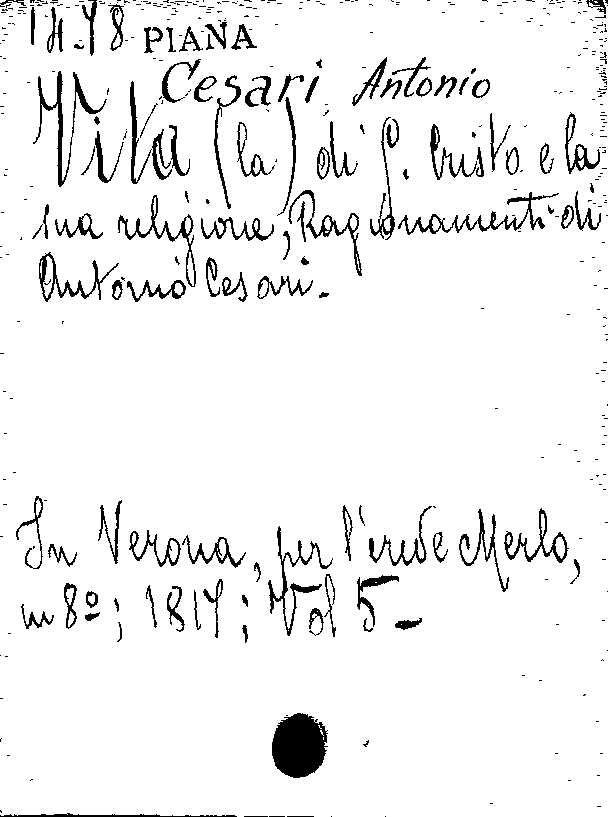 14.78 PIANA
Cesari Antonio
Vita (la) di G. Cristo e la
sua religione; Ragionamenti di
Antonio Cesari.
In Verona, per l'erede Merlo,
in 8º; 1817; Vol 5_